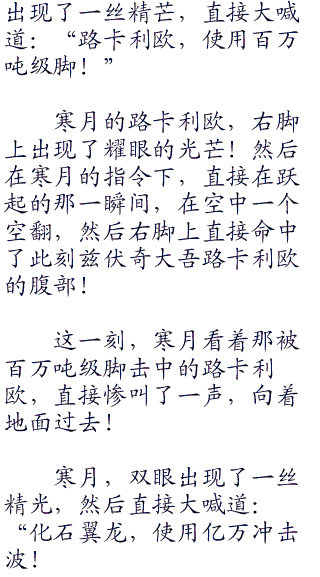 出现了一丝精芒，直接大喊
道：“路卡利欧，使用百万
吨级脚！”
寒月的路卡利欧，右脚
上出现了耀眼的光芒！然后
在寒月的指令下，直接在跃
起的那一瞬间，在空中一个
空翻，然后右脚上直接命中
了此刻兹伏奇大吾路卡利欧
的腹部！
这一刻，寒月看着那被
百万吨级脚击中的路卡利
欧，直接惨叫了一声，向着
地面过去！
寒月，双眼出现了一丝
精光，然后直接大喊道：
“化石翼龙，使用亿万冲击
波！